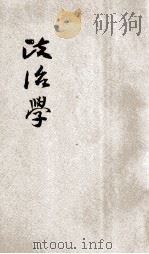 研狗
政治學
mtoou.info